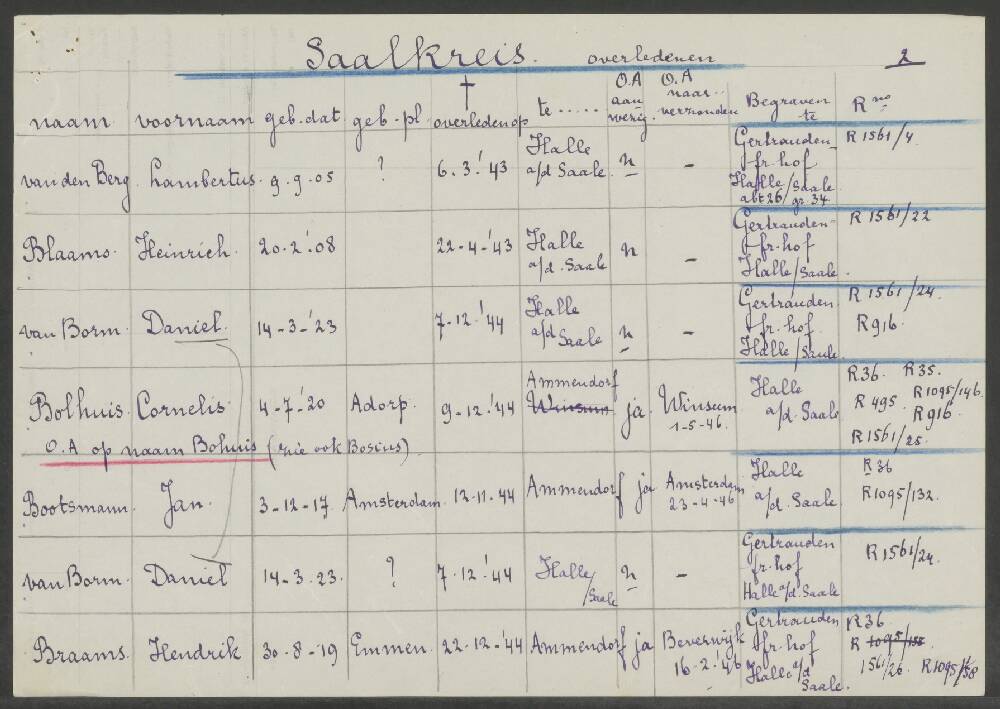 Saalkreis. overledenen 2
naam voornaam geb.dat geb-pl † overleden op te ..... O.A aanwezig. O.A naar.. verzonden Begraven te R no
van den Berg Lambertus. 9.9.05 ? 6.3.'43 Halle a/d Saale. n - Gertrauden-fr.hof Halle/Saale abt 26/gr.34 R 1561/4
Blaams. Heinrich. 20-2.'08 22-4-'43 Halle a/d. Saale n - Gertrauden-fr.hof Halle/Saale. R 1561/22
van Borm. Daniel. 14-3-'23 7-12.'44 Halle a/d Saale n - Gertrauden fr.hof. Halle/Saale. R 1561/24. R916.
Bolhuis. Cornelis. 4-7.'20 Adorp. 9-12.'44 Ammendorf Winsum ja. Winsum 1-5-46. Halle a/d. Saale R36. R35. R 495 R1095/146. R916. R1561/25.
O.A op naam Bohuis (zie ook Bosius).
Bootsmann. Jan. 3-12-17 Amsterdam. 12-11.'44 Ammendorf ja Amsterdam 23-4-46 Halle a/d. Saale R36 R1095/132.
van Borm. Daniel 14-3.23. ? 7-12.'44 Halle/Saale n - Gertrauden fr.hof Halle a/d. Saale R1561/24.
Braams. Hendrik 30-8-19 Emmen. 22-12-'44 Ammendorf ja Beverwijk 16-2.'46 Gertrauden fr.hof Halle a/d Saale. R36 R 1095/158 1561/26. R1095/158